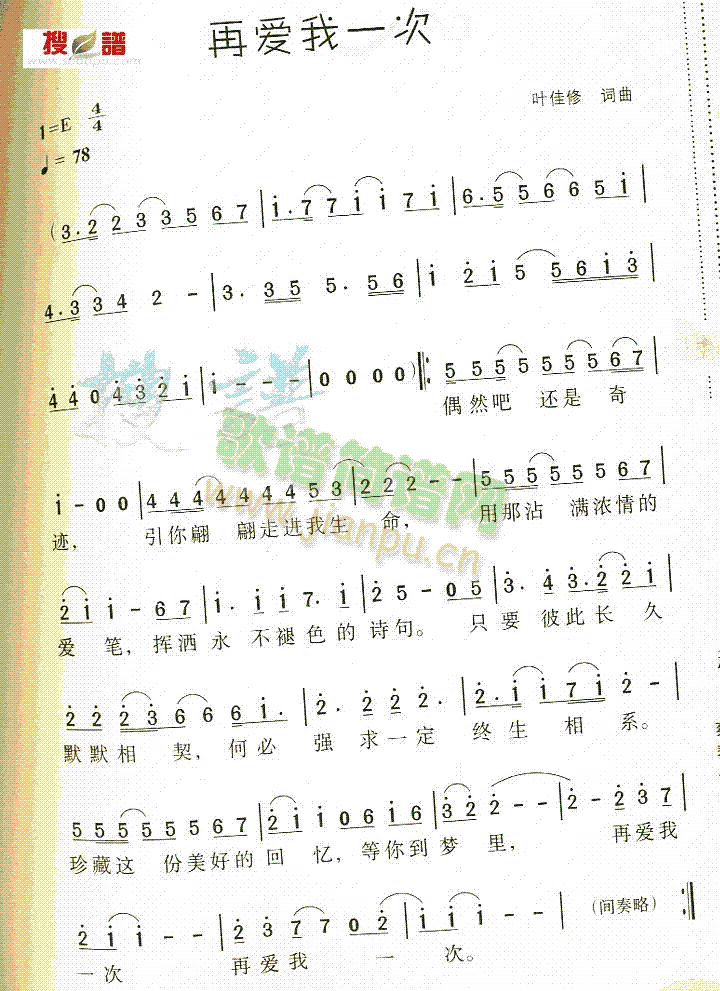 搜 譜
www.soupu.com
再爱我一次
叶佳修 词曲
1=E 4/4
♩= 78
(3·2 2 3 3 5 6 7 | i·7 7 i i 7 i | 6·5 5 5 6 6 5 i |
4·3 3 4 2 - | 3· 3 5 5· 5 6 | i 2 i 5 5 6 i 3 |
4 4 0 4 3 2 i | i - - - | 0 0 0 0 ) ‖: 5 5 5 5 5 5 5 6 7 |
偶然吧 还是 奇
i - 0 0 | 4 4 4 4 4 4 4 5 3 | 2 2 2 - - | 5 5 5 5 5 5 5 6 7 |
迹, 引你翩 翩走进我生 命, 用那沾 满浓情的
2 i i - 6 7 | i· i i 7· i | 2 5 - 0 5 | 3· 4 3· 2 2 i |
爱 笔, 挥洒永 不褪色的诗句。 只要 彼此长 久
2 2 2 3 6 6 6 i· | 2· 2 2 2· | 2· i i 7 i 2 - |
默默相 契, 何必 强 求一定 终生 相 系。
5 5 5 5 5 5 5 6 7 | 2 i i 0 6 i 6 | 3 2 2 - - | 2 - 2 3 7 |
珍藏这 份美好的回 忆, 等你到梦 里, 再爱我
2 i i - - | 2 3 7 7 0 2 | i i - - | (间奏略) :‖
一次 再爱我 一 次。
搜 譜
歌谱简谱网
www.jianpu.cn